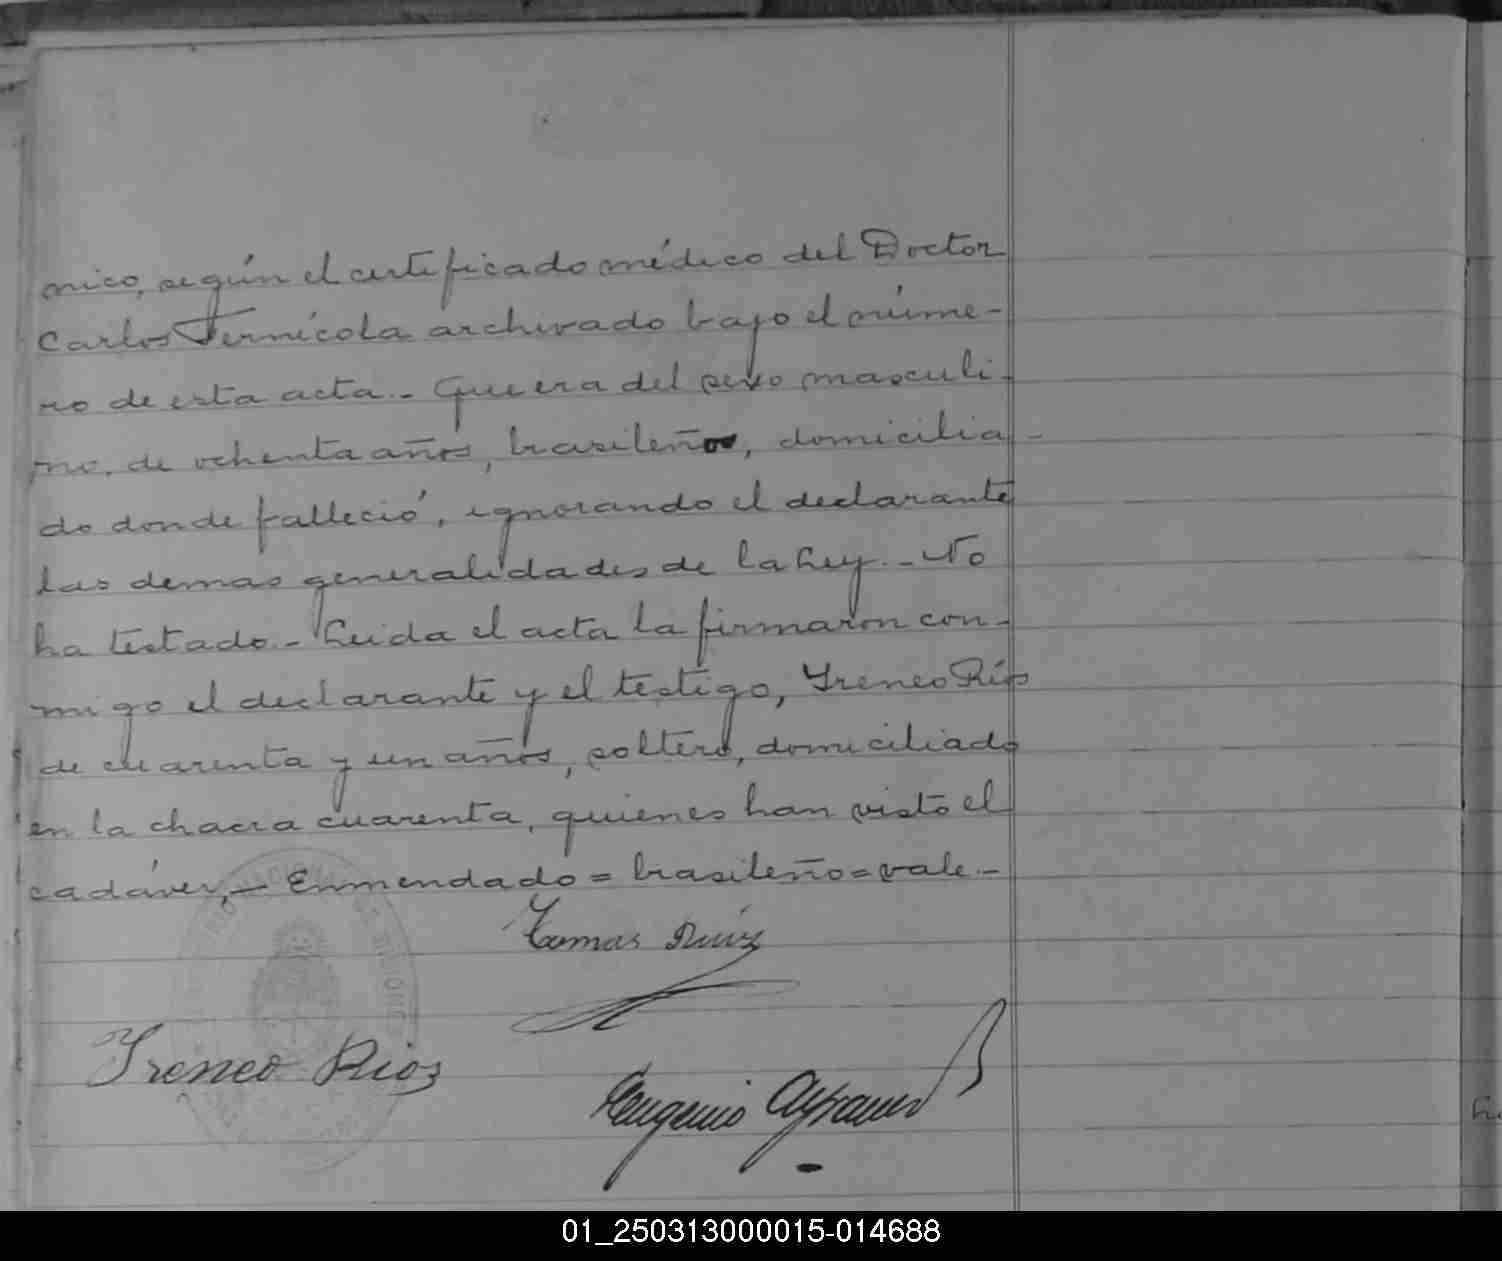 nico, según el certificado médico del Doctor
Carlos Fernícola archivado bajo el núme-
ro de esta acta.- Que era del sexo masculi-
no, de ochenta años, brasileño, domicilia-
do donde falleció, ignorando el declarante
las demas generalidades de la Ley.- No
ha testado.- Leida el acta la firmaron con-
migo el declarante y el testigo, Ireneo Ríos
de cuarenta y un años, soltero, domiciliado
en la chacra cuarenta, quienes han visto el
cadáver.- Enmendado = brasileño = vale.-
Tomas Ruiz
Ireneo Rios
Eugenio
MISIONES
01_250313000015-014688